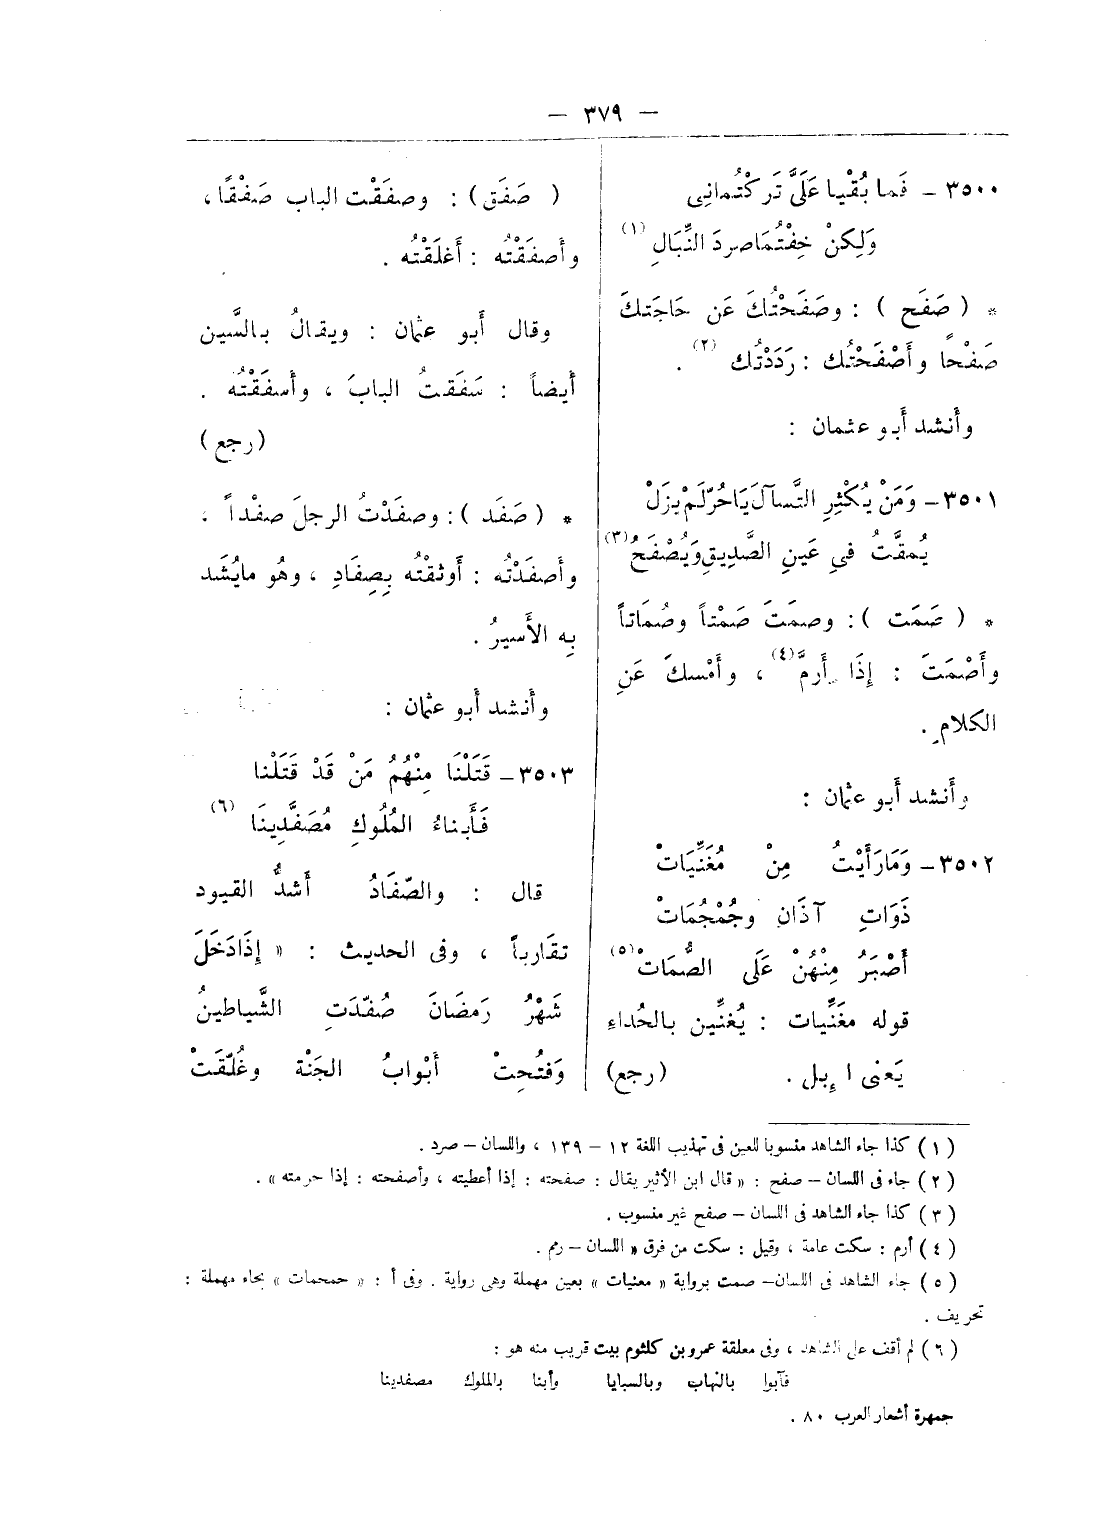 — ٣٧٩ —
٣٥٠٠ – فَما بُقْيا عَلَىَّ تَركْتُمانِى
وَلكِنْ خِفْتُمَا صردَ النِّبَالِ (١)
* ( صَفَح ) : وصَفَحْتُكَ عَن حَاجَتكَ
صَفْحًا وأَصْفَحْتُك : رَدَدْتُك (٢) .
وأَنشد أَبو عثمان :
٣٥٠١ – وَمَنْ يُكْثِرِ التَّسآلَ يَا حُرّ لَمْ يزَلْ
يُمقَّتُ فى عَينِ الصَّدِيقِ وَيُصْفَحُ (٣)
* ( صَمَت ) : وصمَتَ صَمْتاً وصُمَاتاً
وأَصْمَتَ : إِذَا أَرمَّ (٤) ، وأَمْسكَ عَنِ
الكلام .
وأَنشد أَبو عثمان :
٣٥٠٢ – وَمَا رَأَيْتُ مِنْ مُغَنِّيَاتْ
ذَوَاتِ آذَانِ وجُمْجُمَاتْ
أَصْبَرُ مِنْهُنْ عَلَى الصُّمَاتْ (٥)
قوله مغَنِّيات : يُغنِّين بالحُداءِ
يَعْنى ا إبل . (رجع)
( صَفَق ) : وصفَقْت الباب صَفْقًا ،
وأَصفَقْتُه : أَغلَقْتُه .
وقال أَبو عثمان : ويقالُ بالسَّين
أَيضاً : سَفَقتُ البابَ ، وأَسفَقْتُه .
(رجع)
* ( صَفَد ) : وصفَدْتُ الرجلَ صفْداً ،
وأَصفَدْتُه : أَوثقْتُه بِصِفَادِ ، وهُو مايُشَد
بِه الأَسيرُ .
وأَنشد أَبو عثمان :
٣٥٠٣ – قَتَلْنَا مِنْهُمُ مَنْ قَدْ قَتَلْنا
فَأَبناءُ المُلُوكِ مُصَفَّدِينَا (٦)
قال : والصّفَادُ أَشدُّ القيود
تقَارباً ، وفى الحديث : « إِذَا دَخَلَ
شَهْرُ رَمضَانَ صُفّدَتِ الشَّياطينُ
وَفتُحتْ أَبْوابُ الجَنّة وغُلّقَتْ
(١) كذا جاء الشاهد منسوبا للعين فى تهذيب اللغة ١٢ – ١٣٩ ، واللسان – صرد .
(٢) جاء فى اللسان – صفح : « قال ابن الأثير يقال : صفحته : إذا أعطيته ، وأصفحته : إذا حرمته » .
(٣) كذا جاء الشاهد فى اللسان – صفح غير منسوب .
(٤) أرم : سكت عامة ، وقيل : سكت من فرق « اللسان – رمم .
(٥) جاء الشاهد فى اللسان – صمت برواية « معنيات » بعين مهملة وهى رواية . وفى أ : « حمحمات » بحاء مهملة :
تحريف .
(٦) لم أقف على الشاهد ، وفى معلقة عمرو بن كلثوم بيت قريب منه هو :
فآبوا بالنهاب وبالسبايا وأبنا بالملوك مصفدينا
جمهرة أشعار العرب ٨٠ .